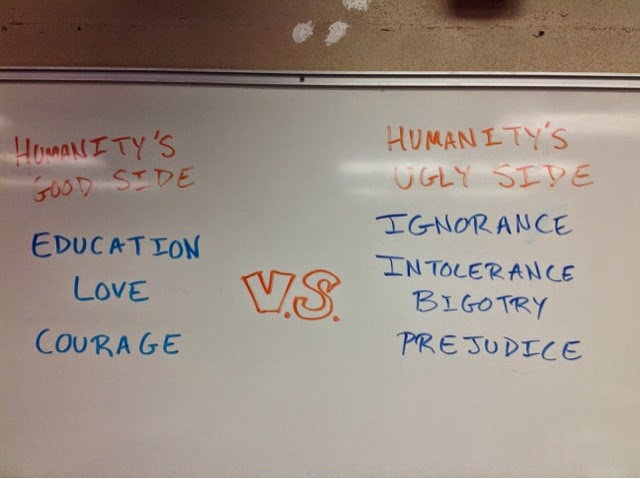 HUMANITY'S
GOOD SIDE
EDUCATION
LOVE
COURAGE
V.S.
HUMANITY'S
UGLY SIDE
IGNORANCE
INTOLERANCE
BIGOTRY
PREJUDICE